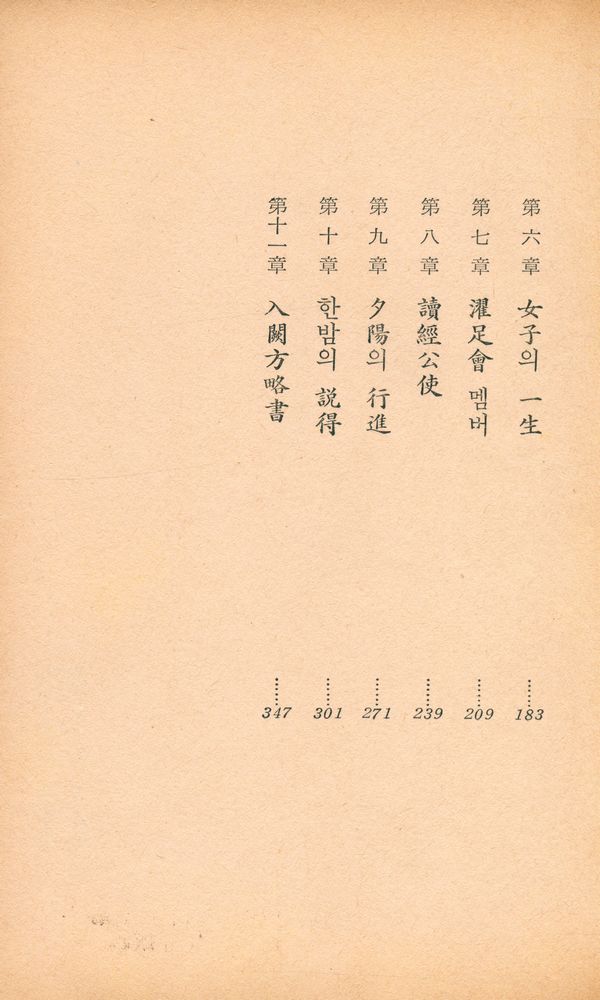 第六章 女子의 一生 ……183
第七章 濯足會 멤버 ……209
第八章 讀經公使 ……239
第九章 夕陽의 行進 ……271
第十章 한밤의 說得 ……301
第十一章 入闕方略書 ……347